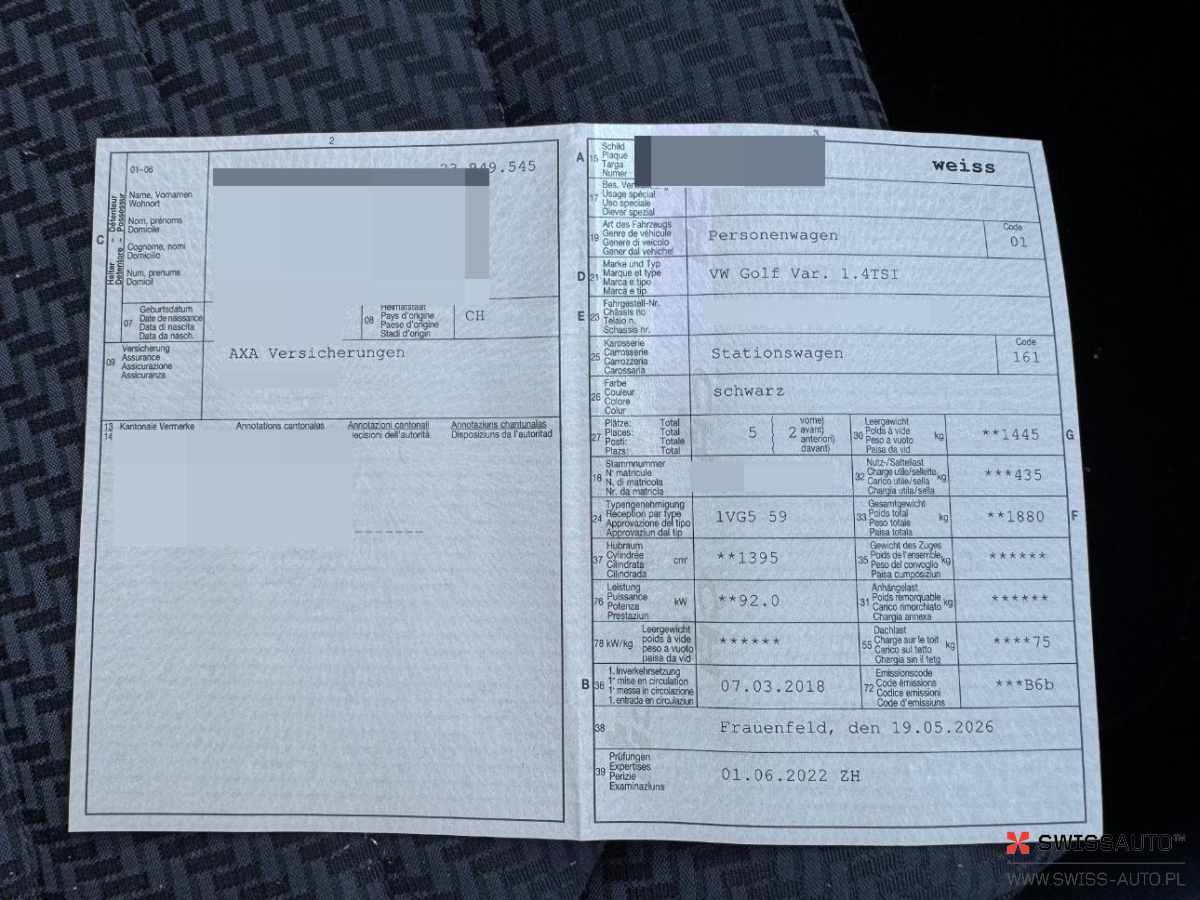 2
01-06
23 949.545
Halter - Détenteur
Detentore - Possessur
C
Name, Vornamen
Wohnort
Nom, prénoms
Domicile
Cognome, nomi
Domicilio
Num, prenums
Domicil
07
Geburtsdatum
Date de naissance
Data di nascita
Data da nasch.
08
Heimatstaat
Pays d'origine
Paese d'origine
Stadi d'origin
CH
09
Versicherung
Assurance
Assicurazione
Assicuranza
AXA Versicherungen
13
14
Kantonale Vermerke
Annotations cantonales
Annotazioni cantonali
Annotaziuns chantunalas
decisioni dell'autorità
Disposiziuns da l'autoritad
3
A
15
Schild
Plaque
Targa
Numer
weiss
17
Bes.
Usage spécial
Uso speciale
Diever spezial
19
Art des Fahrzeugs
Genre de véhicule
Genere di veicolo
Gener dal vehichel
Personenwagen
Code
01
D
21
Marke und Typ
Marque et type
Marca e tipo
Marca e tip
VW Golf Var. 1.4TSI
E
23
Fahrgestell-Nr.
Châssis no
Telaio n.
Schassis nr.
25
Karosserie
Carrosserie
Carrozzeria
Carossaria
Stationswagen
Code
161
26
Farbe
Couleur
Colore
Colur
schwarz
27
Plätze: Total
Places: Total
Posti: Totale
Plazs: Total
5
2
vorne)
avant)
anteriori)
davant)
30
Leergewicht
Poids à vide
Peso a vuoto
Paisa da vid
kg
**1445
G
18
Stammnummer
N° matricule
N. di matricola
Nr. da matricla
32
Nutz-/Sattellast
Charge utile/sellette
Carico utile/sella
Chargia utila/sella
kg
***435
24
Typengenehmigung
Réception par type
Approvazione del tipo
Approvaziun dal tip
1VG5 59
33
Gesamtgewicht
Poids total
Peso totale
Paisa totala
kg
**1880
F
37
Hubraum
Cylindrée
Cilindrata
Cilindrada
cm³
**1395
35
Gewicht des Zuges
Poids de l'ensemble
Peso del convoglio
Paisa cumposiziun
kg
******
76
Leistung
Puissance
Potenza
Prestaziun
kW
**92.0
31
Anhängelast
Poids remorquable
Carico rimorchiato
Chargia annexa
kg
******
78 kW/kg
Leergewicht
poids à vide
peso a vuoto
paisa da vid
******
55
Dachlast
Charge sur le toit
Carico sul tetto
Chargia sin il tetg
kg
****75
B
36
1. Inverkehrsetzung
1re mise en circulation
1a messa in circolazione
1. entrada en circulaziun
07.03.2018
72
Emissionscode
Code émissions
Codice emissioni
Code d'emissiuns
***B6b
38
Frauenfeld, den 19.05.2026
39
Prüfungen
Expertises
Perizie
Examinaziuns
01.06.2022 ZH
SWISSAUTO™
WWW.SWISS-AUTO.PL